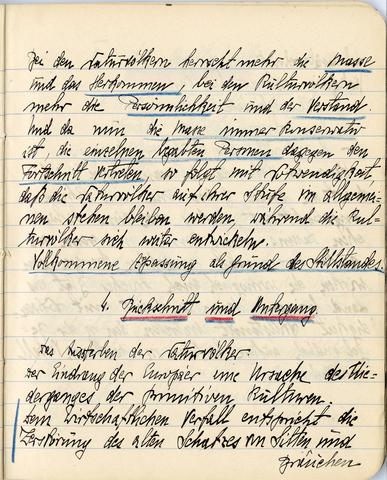 Bei den Naturvölkern herrscht mehr die Masse
und das Herkommen, bei den Kulturvölkern
mehr die Persönlichkeit und der Verstand.
Und da nun die Masse immer konservativ
ist die einzelnen begabten Personen dagegen den
Fortschritt vertreten, so folgt mit Notwendigkeit
daß die Naturvölker auf ihrer Stufe im allgemei-
nen stehen bleiben werden, während die Kul-
turvölker sich weiter entwickeln.
Vollkommene Anpassung als Grund des Stillstandes.
4. Rückschritt und Untergang.
Das Aussterben der Naturvölker.
Der Eindrang der Europäer eine Ursache des Nie-
derganges der primitiven Kulturen.
Dem Wirtschaftlichen Verfall entspricht die
Zerstörung des alten Schatzes von Sitten und
Bräuchen